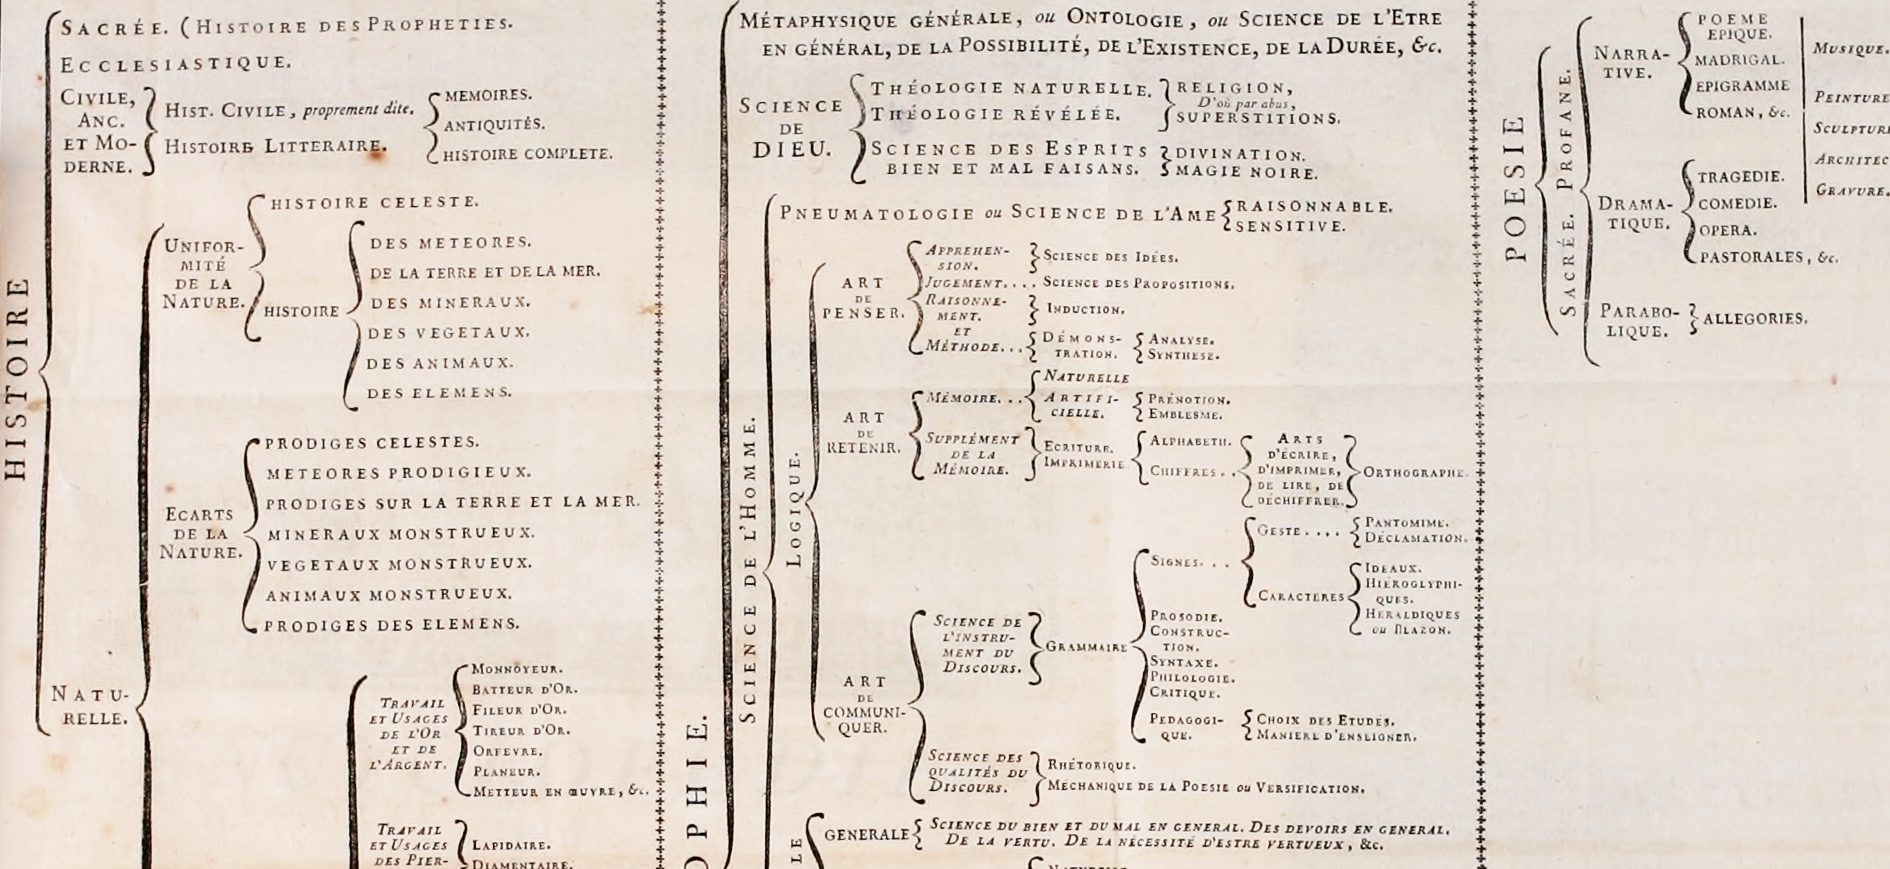 HISTOIRE
SACRÉE. (HISTOIRE DES PROPHETIES.
ECCLESIASTIQUE.
CIVILE,
ANC.
ET MO-
DERNE.
HIST. CIVILE, proprement dite.
HISTOIRE LITTERAIRE.
MEMOIRES.
ANTIQUITÉS.
HISTOIRE COMPLETE.
NATU-
RELLE.
UNIFOR-
MITÉ
DE LA
NATURE.
HISTOIRE CELESTE.
HISTOIRE
DES METEORES.
DE LA TERRE ET DE LA MER.
DES MINERAUX.
DES VEGETAUX.
DES ANIMAUX.
DES ELEMENS.
ECARTS
DE LA
NATURE.
PRODIGES CELESTES.
METEORES PRODIGIEUX.
PRODIGES SUR LA TERRE ET LA MER.
MINERAUX MONSTRUEUX.
VEGETAUX MONSTRUEUX.
ANIMAUX MONSTRUEUX.
PRODIGES DES ELEMENS.
TRAVAIL
ET USAGES
DE L'OR
ET DE
L'ARGENT.
MONNOYEUR.
BATTEUR D'OR.
FILEUR D'OR.
TIREUR D'OR.
ORFEVRE.
PLANEUR.
METTEUR EN ŒUVRE, &c.
TRAVAIL
ET USAGES
DES PIER-
LAPIDAIRE.
DIAMENTAIRE.
OPHIE.
MÉTAPHYSIQUE GÉNÉRALE, ou ONTOLOGIE, ou SCIENCE DE L'ETRE
EN GÉNÉRAL, DE LA POSSIBILITÉ, DE L'EXISTENCE, DE LA DURÉE, &c.
SCIENCE
DE
DIEU.
THÉOLOGIE NATURELLE.
THÉOLOGIE RÉVÉLÉE.
RELIGION,
D'où par abus,
SUPERSTITIONS.
SCIENCE DES ESPRITS
BIEN ET MAL FAISANS.
DIVINATION.
MAGIE NOIRE.
SCIENCE DE L'HOMME.
PNEUMATOLOGIE ou SCIENCE DE L'AME
RAISONNABLE.
SENSITIVE.
LOGIQUE.
ART
DE
PENSER.
APPREHEN-
SION.
SCIENCE DES IDÉES.
JUGEMENT.... SCIENCE DES PROPOSITIONS.
RAISONNE-
MENT.
INDUCTION.
ET
MÉTHODE...
DÉMONS-
TRATION.
ANALYSE.
SYNTHESE.
ART
DE
RETENIR.
MÉMOIRE...
NATURELLE
ARTIFI-
CIELLE.
PRÉNOTION.
EMBLESME.
SUPPLÉMENT
DE LA
MÉMOIRE.
ECRITURE.
IMPRIMERIE
ALPHABETH.
CHIFFRES..
ARTS
D'ÉCRIRE,
D'IMPRIMER,
DE LIRE, DE
DÉCHIFFRER.
ORTHOGRAPHE.
ART
DE
COMMUNI-
QUER.
SCIENCE DE
L'INSTRU-
MENT DU
DISCOURS.
GRAMMAIRE
SIGNES...
GESTE....
PANTOMIME.
DÉCLAMATION.
CARACTERES
IDEAUX.
HIÉROGLYPHI-
QUES.
HERALDIQUES
ou BLAZON.
PROSODIE.
CONSTRUC-
TION.
SYNTAXE.
PHILOLOGIE.
CRITIQUE.
PEDAGOGI-
QUE.
CHOIX DES ETUDES.
MANIERE D'ENSEIGNER.
SCIENCE DES
QUALITÉS DU
DISCOURS.
RHÉTORIQUE.
MÉCHANIQUE DE LA POESIE ou VERSIFICATION.
LE
GENERALE
SCIENCE DU BIEN ET DU MAL EN GENERAL. DES DEVOIRS EN GENERAL.
DE LA VERTU. DE LA NÉCESSITÉ D'ESTRE VERTUEUX, &c.
POESIE
SACRÉE. PROFANE.
NARRA-
TIVE.
POEME
EPIQUE.
MADRIGAL.
EPIGRAMME
ROMAN, &c.
DRAMA-
TIQUE.
TRAGEDIE.
COMEDIE.
OPERA.
PASTORALES, &c.
PARABO-
LIQUE.
ALLEGORIES.
MUSIQUE.
PEINTURE
SCULPTUR
ARCHITEC
GRAVURE.